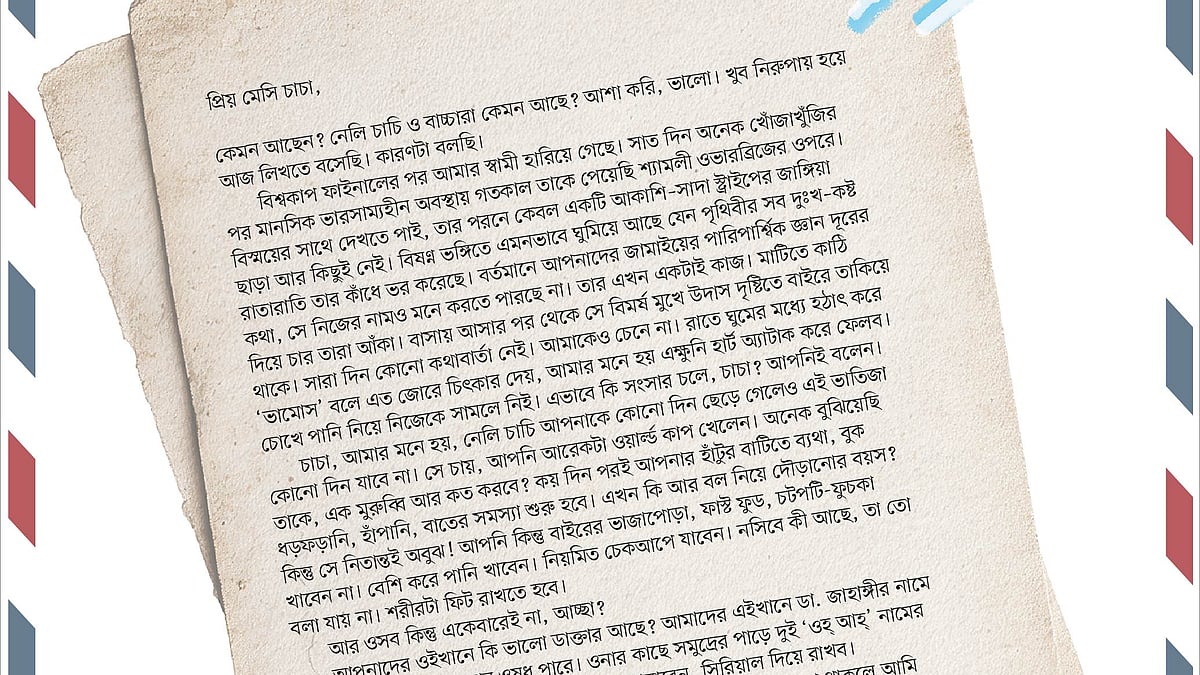 প্রিয় মেসি চাচা,
কেমন আছেন? নেলি চাচি ও বাচ্চারা কেমন আছে? আশা করি, ভালো। খুব নিরুপায় হয়ে
আজ লিখতে বসেছি। কারণটা বলছি।
বিশ্বকাপ ফাইনালের পর আমার স্বামী হারিয়ে গেছে। সাত দিন অনেক খোঁজাখুঁজির
পর মানসিক ভারসাম্যহীন অবস্থায় গতকাল তাকে পেয়েছি শ্যামলী ওভারব্রিজের ওপরে।
বিস্ময়ের সাথে দেখতে পাই, তার পরনে কেবল একটি আকাশি-সাদা স্ট্রাইপের জাঙ্গিয়া
ছাড়া আর কিছুই নেই। বিষণ্ন ভঙ্গিতে এমনভাবে ঘুমিয়ে আছে যেন পৃথিবীর সব দুঃখ-কষ্ট
রাতারাতি তার কাঁধে ভর করেছে। বর্তমানে আপনাদের জামাইয়ের পারিপার্শ্বিক জ্ঞান দূরের
কথা, সে নিজের নামও মনে করতে পারছে না। তার এখন একটাই কাজ। মাটিতে কাঠি
দিয়ে চার তারা আঁকা। বাসায় আসার পর থেকে সে বিমর্ষ মুখে উদাস দৃষ্টিতে বাইরে তাকিয়ে
থাকে। সারা দিন কোনো কথাবার্তা নেই। আমাকেও চেনে না। রাতে ঘুমের মধ্যে হঠাৎ করে
‘ভামোস’ বলে এত জোরে চিৎকার দেয়, আমার মনে হয় এক্ষুনি হার্ট অ্যাটাক করে ফেলব।
চোখে পানি নিয়ে নিজেকে সামলে নিই। এভাবে কি সংসার চলে, চাচা? আপনিই বলেন।
চাচা, আমার মনে হয়, নেলি চাচি আপনাকে কোনো দিন ছেড়ে গেলেও এই ভাতিজা
কোনো দিন যাবে না। সে চায়, আপনি আরেকটা ওয়ার্ল্ড কাপ খেলেন। অনেক বুঝিয়েছি
তাকে, এক মুরুব্বি আর কত করবে? কয় দিন পরই আপনার হাঁটুর বাটিতে ব্যথা, বুক
ধড়ফড়ানি, হাঁপানি, বাতের সমস্যা শুরু হবে। এখন কি আর বল নিয়ে দৌড়ানোর বয়স?
কিন্তু সে নিতান্তই অবুঝ! আপনি কিন্তু বাইরের ভাজাপোড়া, ফাস্ট ফুড, চটপটি-ফুচকা
খাবেন না। বেশি করে পানি খাবেন। নিয়মিত চেকআপে যাবেন। নসিবে কী আছে, তা তো
বলা যায় না। শরীরটা ফিট রাখতে হবে।
আর ওসব কিন্তু একেবারেই না, আচ্ছা?
আপনাদের ওইখানে কি ভালো ডাক্তার আছে? আমাদের এইখানে ডা. জাহাঙ্গীর নামে
ওষুধ পারে। ওনার কাছে সমুদ্রের পাড়ে দুই ‘ওহ্ আহ্’ নামের
সিরিয়াল দিয়ে রাখব।
থাকলে আমি